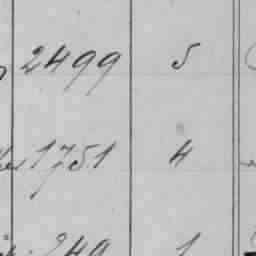 2499 5
1751 4
249 1